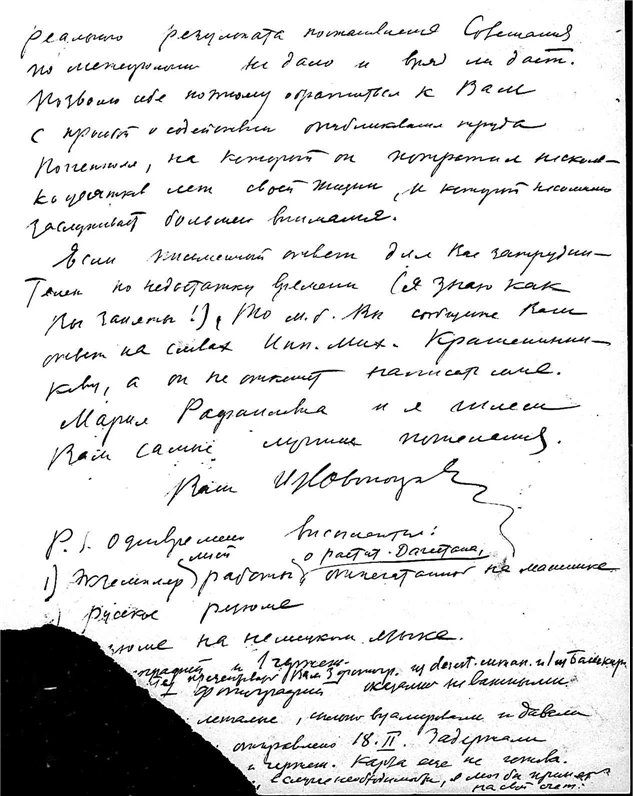 реального результата постановления Совещания
по метеорологии не дало и вряд ли даст.
Позволю себе поэтому обратиться к Вам
с просьбой о содействии опубликования труда
на который он потратил несколь-
ко десятков лет своей жизни, и который несомненно
заслуживает большего внимания.
Если письменный ответ для Вас затрудни-
телен по недостатку времени (я знаю как
Вы заняты!), то м.б. Вы сообщите Ваш
ответ на словах Ипп. Мих. Крашенинни-
кову, а он не откажет написать мне.
Мария Рафаиловна и я шлем
Вам самые лучшие пожелания.
Ваш
P.S. Одновременно высылаются:
1) Экземпляр моей работы о растит. Дагестана, отпечатанной на машинке
) Русское резюме
зюме на немецком языке.
и 1 чертеж.
фотографий оказались не важными.
, сильно вуалировали и давали
отправлено 18.II. Задержали
и чертеж. Карта еще не готова.
в случае необходимости, я мог бы принять
на свой счет.